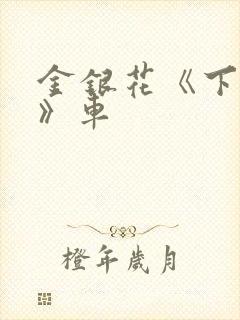 金銀花《下
》車
橙年歲月